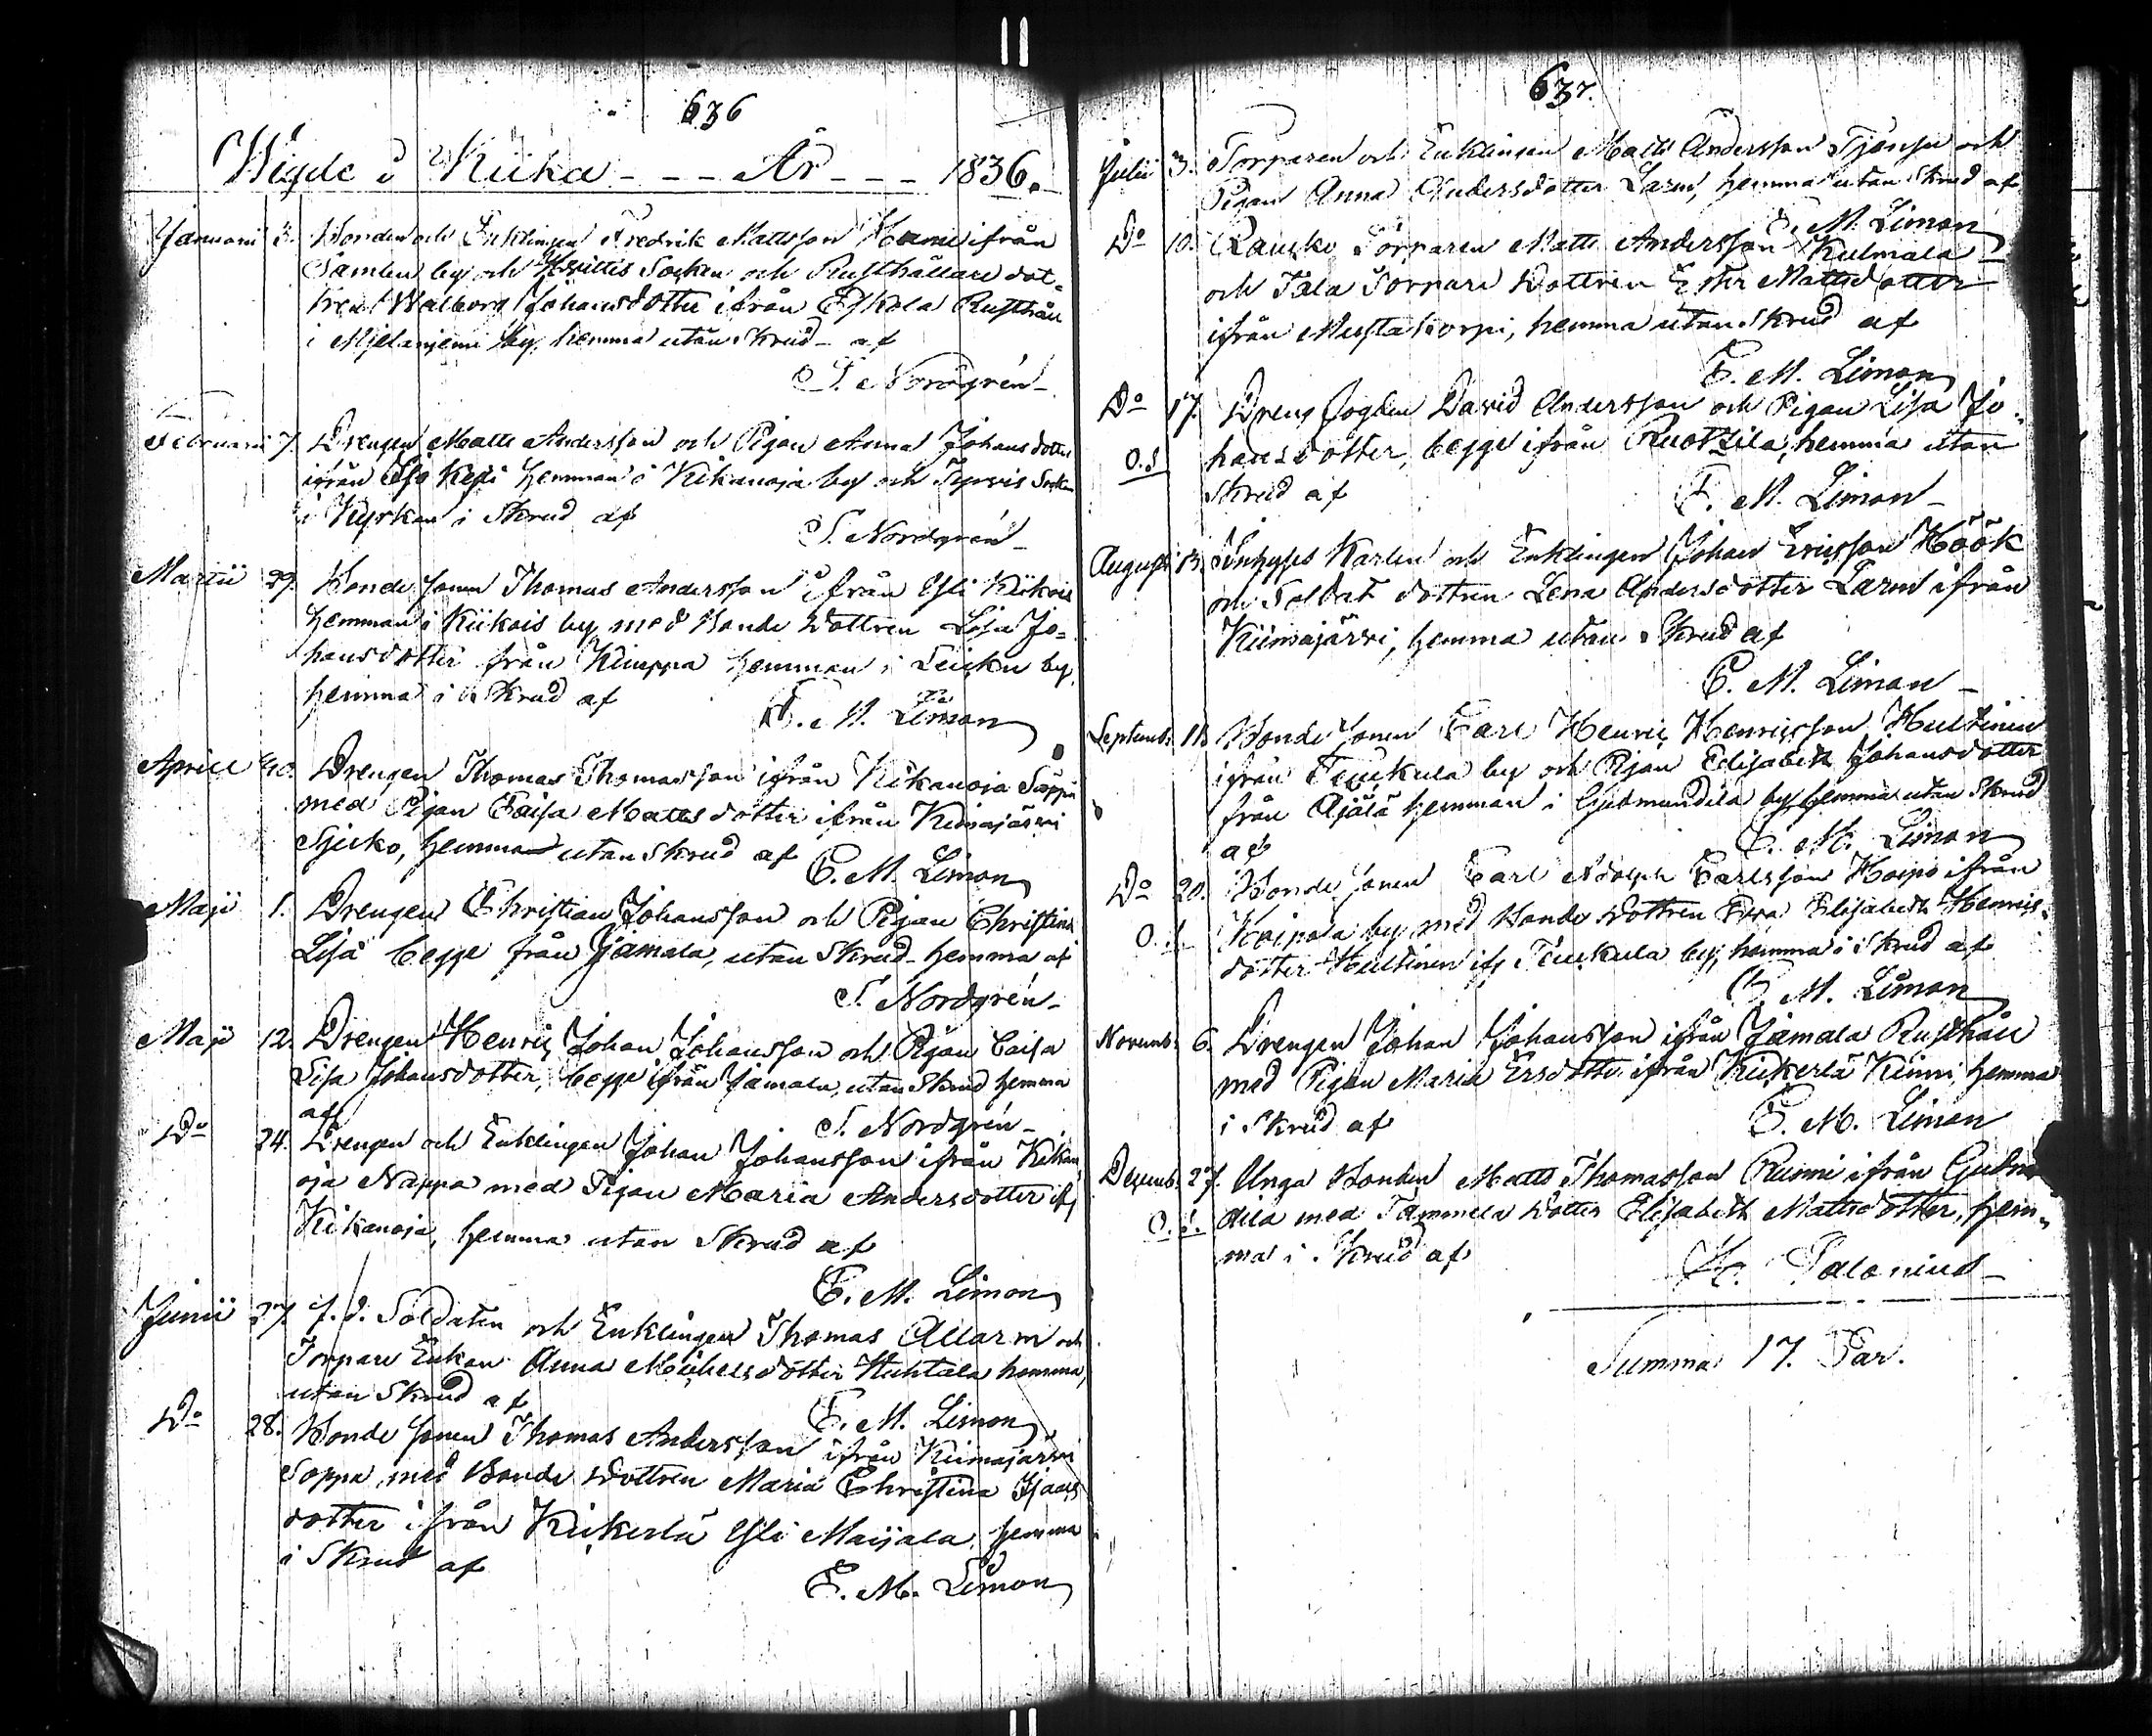 636
Wigde i Kiika - - - År - - - 1836.
Januarii 3. Bonden och Enklingen Fredrik Mattsson ifrån
by och Hvittis Socken och Rusthållare dot-
tren Walborg Johansdotter ifrån Eskola Rusthåll
i by, hemma utan Skrud af
S. Nordgrén
Februarii 7. Drengen Matts Andersson och Pigan Anna Johansdotter
ifrån hemman i Kikanoja by och Tyrvis Socken
i Kyrkan i Skrud af
S. Nordgrén
Martii 29. Bonde Sonen Thomas Andersson ifrån Ylli Kiikois
hemman i Kiikois by med Bonde Dottren Lisa Jo-
hansdotter från Kimppa hemman i Leikku by
hemma i Skrud af
E. M. Limon
Aprill 10. Drengen Thomas Thomasson ifrån Kikanoja Seppä
med Pigan Caisa Mattsdotter ifrån Kiimajärvi
hemma utan Skrud af
E. M. Limon
Maji 1. Drengen Christian Johansson och Pigan Christina
Lisa begge från Jamala, utan Skrud hemma af
S. Nordgrén
Maji 12. Drengen Henric Johan Johansson och Pigan Caisa
Lisa Johansdotter, begge ifrån Jamala, utan Skrud hemma
af
S. Nordgrén
Do 24. Drengen och Enklingen Johan Johansson ifrån Kikan-
oja Nappa med Pigan Maria Andersdotter ifr
Kikanoja, hemma utan Skrud af
E. M. Limon
Junii 27. f.d. Soldaten och Enklingen Thomas Allarm och
Torpare Enkan Anna Michelsdotter Huhtala hemma,
utan Skrud af
E. M. Limon
Do 28. Bonde Sonen Thomas Andersson ifrån Kiimajärvi
Soppa, med Bonde Dottren Maria Christina Isaacs
dotter ifrån Kiikerlä Ylli Maijala, hemma
i Skrud af
E. M. Limon
637.
Julii 3. Torparen och Enklingen Matts Andersson och
Pigan Anna Andersdotter Larm, hemma utan Skrud af
E. M. Limon
Do 10. Torparen Matts Andersson Kulmala
och Tala Torpare Dottren Ester Mattsdotter
ifrån Mustakorpi, hemma utan Skrud af
E. M. Limon
Do 17. Dreng fogden David Andersson och Pigan Lisa Jo-
O.S. hansdotter, begge ifrån Ruotzila, hemma utan
Skrud af
E. M. Limon
Augusti 13. Inhyses Karlen och Enklingen Johan Ericsson Höök
och Soldat dottren Lena Andersdotter Larm ifrån
Kiimajärvi, hemma utan Skrud af
E. M. Limon
Septemb. 18. Bonde Sonen Carl Henric Henricsson Hultinen
ifrån by och Pigan Elisabeth Johansdotter
från Äjälä hemman i Gudmundila by hemma utan Skrud
af
E. M. Limon
Do 20. Bonde Sonen Carl Adolph Carlsson Koipo ifrån
O.S. Koipola by med Bonde Dottren Eva Elisabeth Henrics-
dotter Hultinen ifr by, hemma i Skrud af
E. M. Limon
Novemb. 6. Drengen Johan Johansson ifrån Jamala Rusthåll
med Pigan Maria Ersdotter ifrån Kiikerlä Kinni, hemma
i Skrud af
E. M. Limon
Decemb. 27. Unga Bonden Matts Thomasson ifrån Gudmun
O.S. dila med Dotter Elisabeth Mattsdotter, hem-
ma i Skrud af
Palonius
Summa 17. Par.